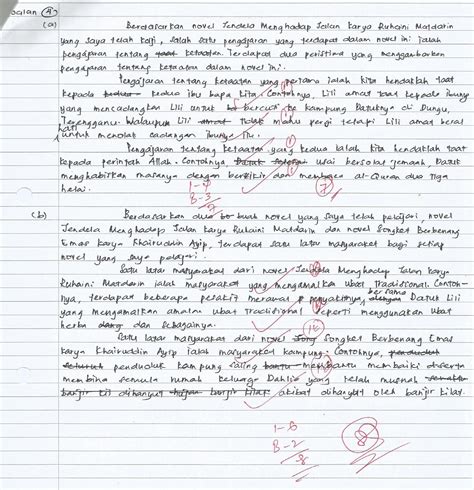 Soalan 4
(a) Berdasarkan novel Jendela Menghadap Jalan karya Ruhaini Matdarin
yang saya telah kaji, salah satu pengajaran yang terdapat dalam novel ini ialah
pengajaran tentang taat ketaatan. Terdapat dua peristiwa yang menggambarkan
pengajaran tentang ketaatan dalam novel ini.
Pengajaran tentang ketaatan yang pertama ialah kita hendaklah taat
kepada kedua ibu bapa kita. Contohnya, Lili amat taat kepada ibunya
yang mencadangkan Lili untuk be bercuti ke kampung Datuknya di Dungu,
Terengganu. Walaupun Lili amat tidak mahu pergi tetapi Lili amat berat
hati
untuk menolak cadangan ibunya itu.
Pengajaran tentang ketaatan yang kedua ialah kita hendaklah taat
kepada perintah Allah. Contohnya, Datuk selepas usai bersolat jemaah, Datuk
menghabiskan masanya dengan berzikir dan membaca al-Quran dua tiga
helai.
1-4
B-3
7
7
(b) Berdasarkan dua bo buah novel yang saya telah pelajari, novel
Jendela Menghadap Jalan karya Ruhaini Matdarin dan novel Songket Berbenang
Emas karya Khairuddin Ayip, terdapat satu latar masyarakat bagi setiap
novel yang saya pelajari.
Satu latar masyarakat dari novel Jendela Menghadap Jalan karya
Ruhaini Matdarin ialah masyarakat yang mengamalkan ubat Tradisional. Contoh-
nya, terdapat beberapa pesakit merawat penyakitnya, dengan bersama Datuk Lili
yang mengamalkan amalan ubat Tradisional seperti menggunakan ubat
herba dang dan sebagainya.
Satu latar masyarakat dari novel Song Songket Berbenang Emas
karya Khairuddin Ayip ialah masyarakat kampung. Contohnya, penduduk
seluruh penduduk kampung saling bantu membantu membaiki deserta
membina semula rumah keluarga Dahlia yang telah musnah
banjir kil dihanyut banjir kilat akibat dihanyut oleh banjir kilat.
1-6
B-2
8
8